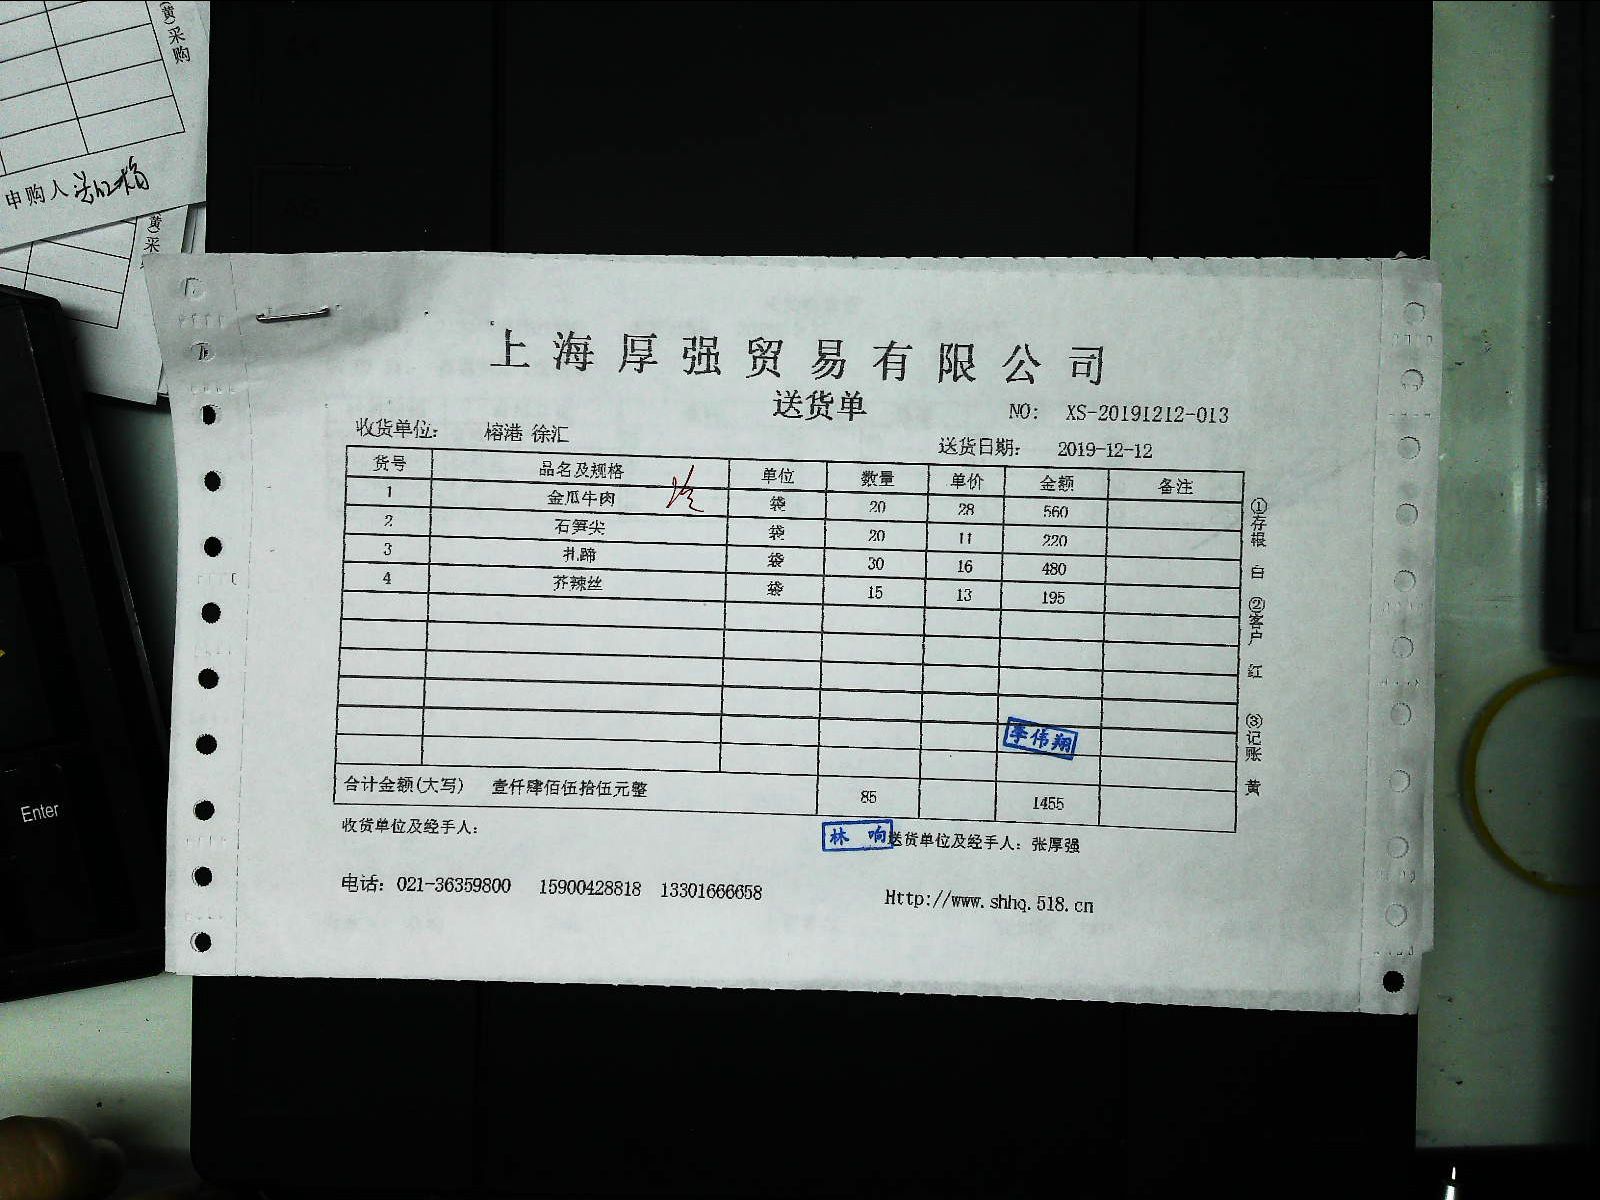 (黄)采购
申购人
黄)采
Enter
上海厚强贸易有限公司
送货单
NO: XS-20191212-013
收货单位: 榕港 徐汇
送货日期: 2019-12-12
货号 品名及规格 单位 数量 单价 金额 备注
1 金瓜牛肉 袋 20 28 560
2 石笋尖 袋 20 11 220
3 扎蹄 袋 30 16 480
4 芥辣丝 袋 15 13 195
李伟翔
合计金额(大写) 壹仟肆佰伍拾伍元整 85 1455
收货单位及经手人:
林响
送货单位及经手人: 张厚强
电话: 021-36359800 15900428818 13301666658
Http://www.shhq.518.cn
①存根 白 ②客户 红 ③记账 黄